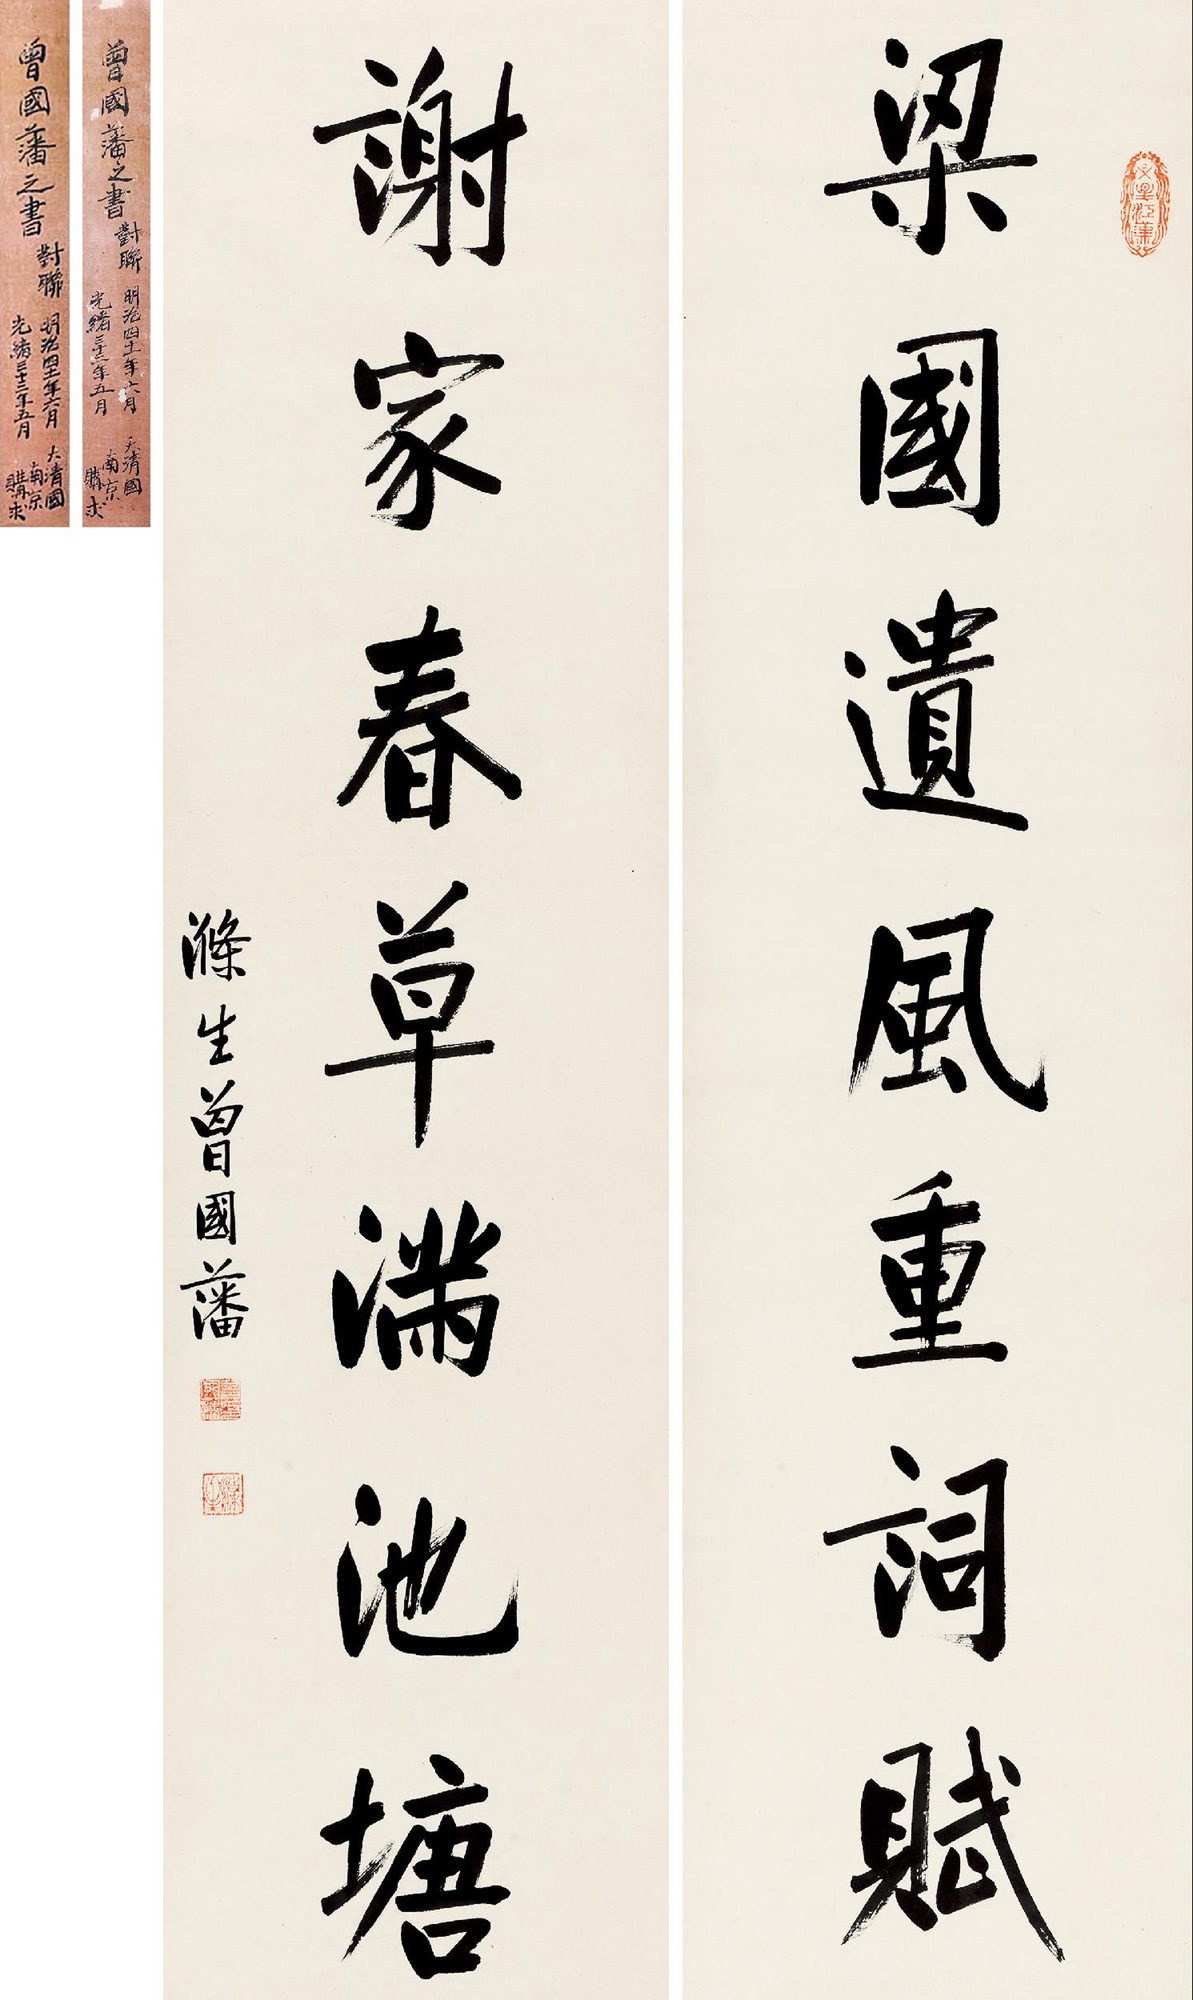 梁國遺風重詞賦
謝家春草滿池塘
滌生曾國藩
曾國藩之書
對聯
明治四十年六月
光緒三十三年五月
大清國
南京
購求
曾國藩之書
對聯
明治四十年六月
光緒三十三年五月
大清國
南京
購求